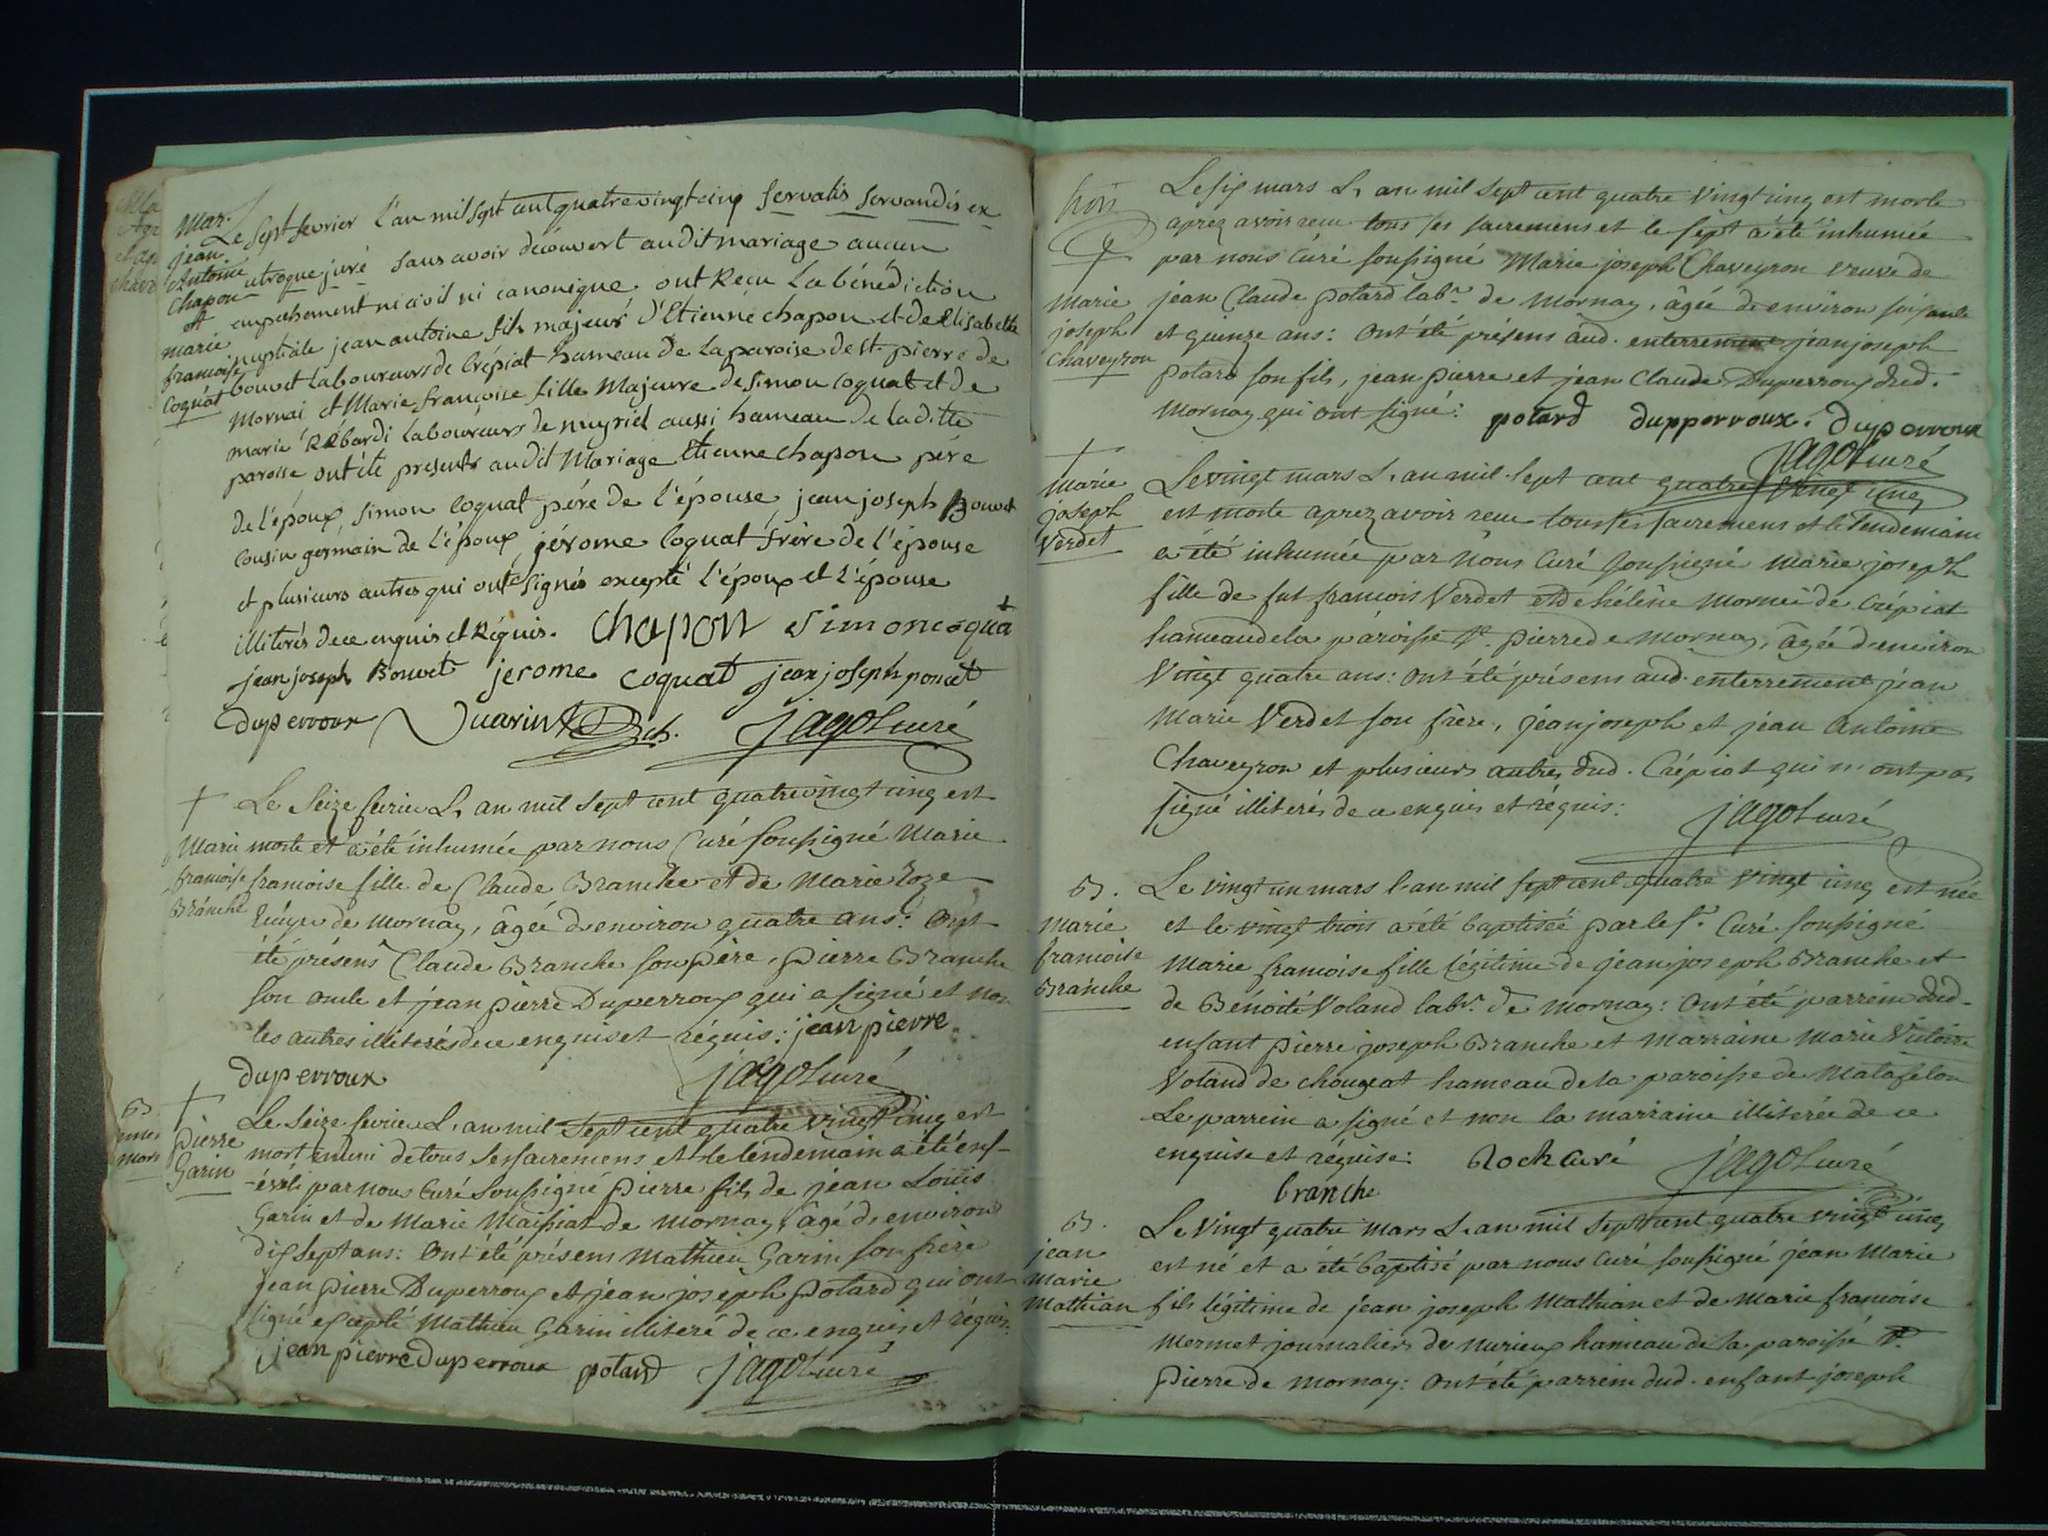 Mar.
jean
Antoine
Chapon
et
marie
francoise
Coquat
Le sept fevrier l'an mil sept cent quatre vingt cinq servatis servandis ex
utroque juré sans avoir découvert au dit mariage aucun
empechement ni civil ni canonique ont Recu La bénédiction
nuptiale jean antoine fils majeur d'Etienne chapon et de Elisabeth
bouvet laboureurs de Crépiat hameau de la paroise de st. pierre de
Mornai et Marie françoise fille Majeure de simon coquat et de
marie Rébardi laboureurs de nuyriel aussi hameau de la ditte
paroise ont été presents au dit Mariage Etienne chapon père
de l'époux, simon coquat père de l'épouse, jean joseph Bouvet
cousin germain de l'époux, jérome coquat frère de l'épouse
et plusieurs autres qui ont signés excepté l'époux et l'épouse
illiterés de ce enquis et Réquis. Chapon simon coquat
jean joseph Bouvet jerome coquat jean joseph poncet
duperroux Vuarin jagot curé
†
Marie
francoise
Branche
Le Seize fevrier L'an mil sept cent quatre vingt cinq est
morte et a été inhumée par nous Curé soussigné Marie
francoise fille de Claude Branche et de Marie Roze
de Mornay, âgée d'environ quatre ans: Ont
été présens Claude Branche son Père, pierre Branche
son oncle et jean pierre Duperroux qui a signé et non
les autres illiterés de ce enquis et réquis: jean pierre
duperroux jagot curé
†
pierre
Garin
Le Seize fevrier L'an mil sept cent quatre vingt cinq est
mort muni de tous ses sacremens et le lendemain a été ens-
-éveli par nous Curé Soussigné pierre fils de jean Louis
Garin et de Marie Maissiat de Mornay, âgé d'environ
dix sept ans: Ont été présens Mathieu Garin son frere
jean pierre Duperroux et jean joseph Potard qui ont
signé excepté Mathieu Garin illiteré de ce enquis et réquis.
jean pierre duperroux potard jagot curé
trois
†
Marie
joseph
Chaveyron
Le six mars L'an mil sept cent quatre vingt cinq est morte
aprez avoir recu tous ses sacremens et le sept a été inhumée
par nous Curé soussigné Marie joseph Chaveyron veuve de
jean Claude Potard labr. de Mornay, âgée d'environ soixante
et quinze ans: Ont été présens aud. enterrement jean joseph
Potard son fils, jean pierre et jean Claude Duperroux dud.
Mornay qui ont signé: potard dupperroux. duperroux
jagot curé
†
Marie
joseph
Verdet
Le vingt mars L'an mil sept cent quatre vingt cinq
est morte aprez avoir recu tous ses sacremens et le lendemain
a été inhumée par nous Curé soussigné Marie joseph
fille de fut francois Verdet et de hélène Mornei de Crépiat
hameau de la paroisse St. pierre de Mornay, âgée d'environ
Vingt quatre ans: Ont été présens aud. enterrement jean
Marie Verdet son frère, jean joseph et jean Antoine
Chaveyron et plusieurs autres dud. Crépiat qui n'ont pas
signé illiterés de ce enquis et réquis: jagot curé
B.
Marie
francoise
Branche
Le vingt un mars l'an mil sept cent quatre vingt cinq est née
et le vingt trois a été baptisée par le sr. Curé soussigné
Marie francoise fille légitime de jean joseph Branche et
de Bénoité Voland labr. de Mornay: Ont été parrein dud.
enfant pierre joseph Branche et Marraine Marie Victoire
Voland de chougeat hameau de la paroisse de Matafelon
Le parrein a signé et non la marraine illiterée de ce
enquise et réquise: Roch curé jagot curé
branche
B.
jean
Marie
Mathian
Le Vingt quatre mars L'an mil sept cent quatre vingt cinq
est né et a été baptisé par nous curé soussigné jean Marie
fils légitime de jean joseph Mathian et de Marie francoise
Mermet journaliers de Nurieux hameau de la paroisse St.
pierre de Mornay: Ont été parrein dud. enfant joseph